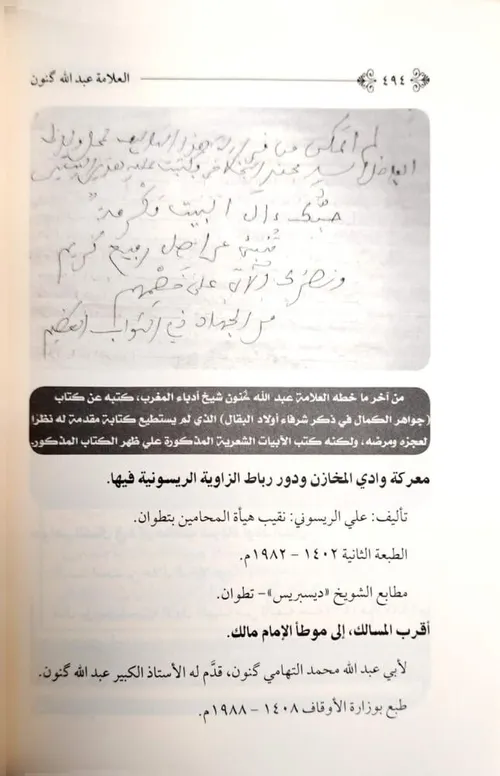 ٤٩٤
العلامة عبد الله گنون
لم أتمكن من
السيد
حبُّكَ ءال البيت مَكْرمة
تُنْبِئُ عن أصل رفيع كريم
ونصرك على خصمهم
من الجهاد في الثواب العظيم
من آخر ما خطه العلامة عبد الله گنون شيخ أدباء المغرب، كتبه عن كتاب
(جواهر الكمال في ذكر شرفاء أولاد البقال) الذي لم يستطيع كتابة مقدمة له نظرا
لعجزه ومرضه، ولكنه كتب الأبيات الشعرية المذكورة على ظهر الكتاب المذكور.
معركة وادي المخازن ودور رباط الزاوية الريسونية فيها.
تأليف: علي الريسوني: نقيب هيأة المحامين بتطوان.
الطبعة الثانية ١٤٠٢ - ١٩٨٢م.
مطابع الشويخ «ديسبريس»- تطوان.
أقرب المسالك، إلى موطأ الإمام مالك.
لأبي عبد الله محمد التهامي گنون، قدَّم له الأستاذ الكبير عبد الله گنون.
طبع بوزارة الأوقاف ١٤٠٨ - ١٩٨٨م.